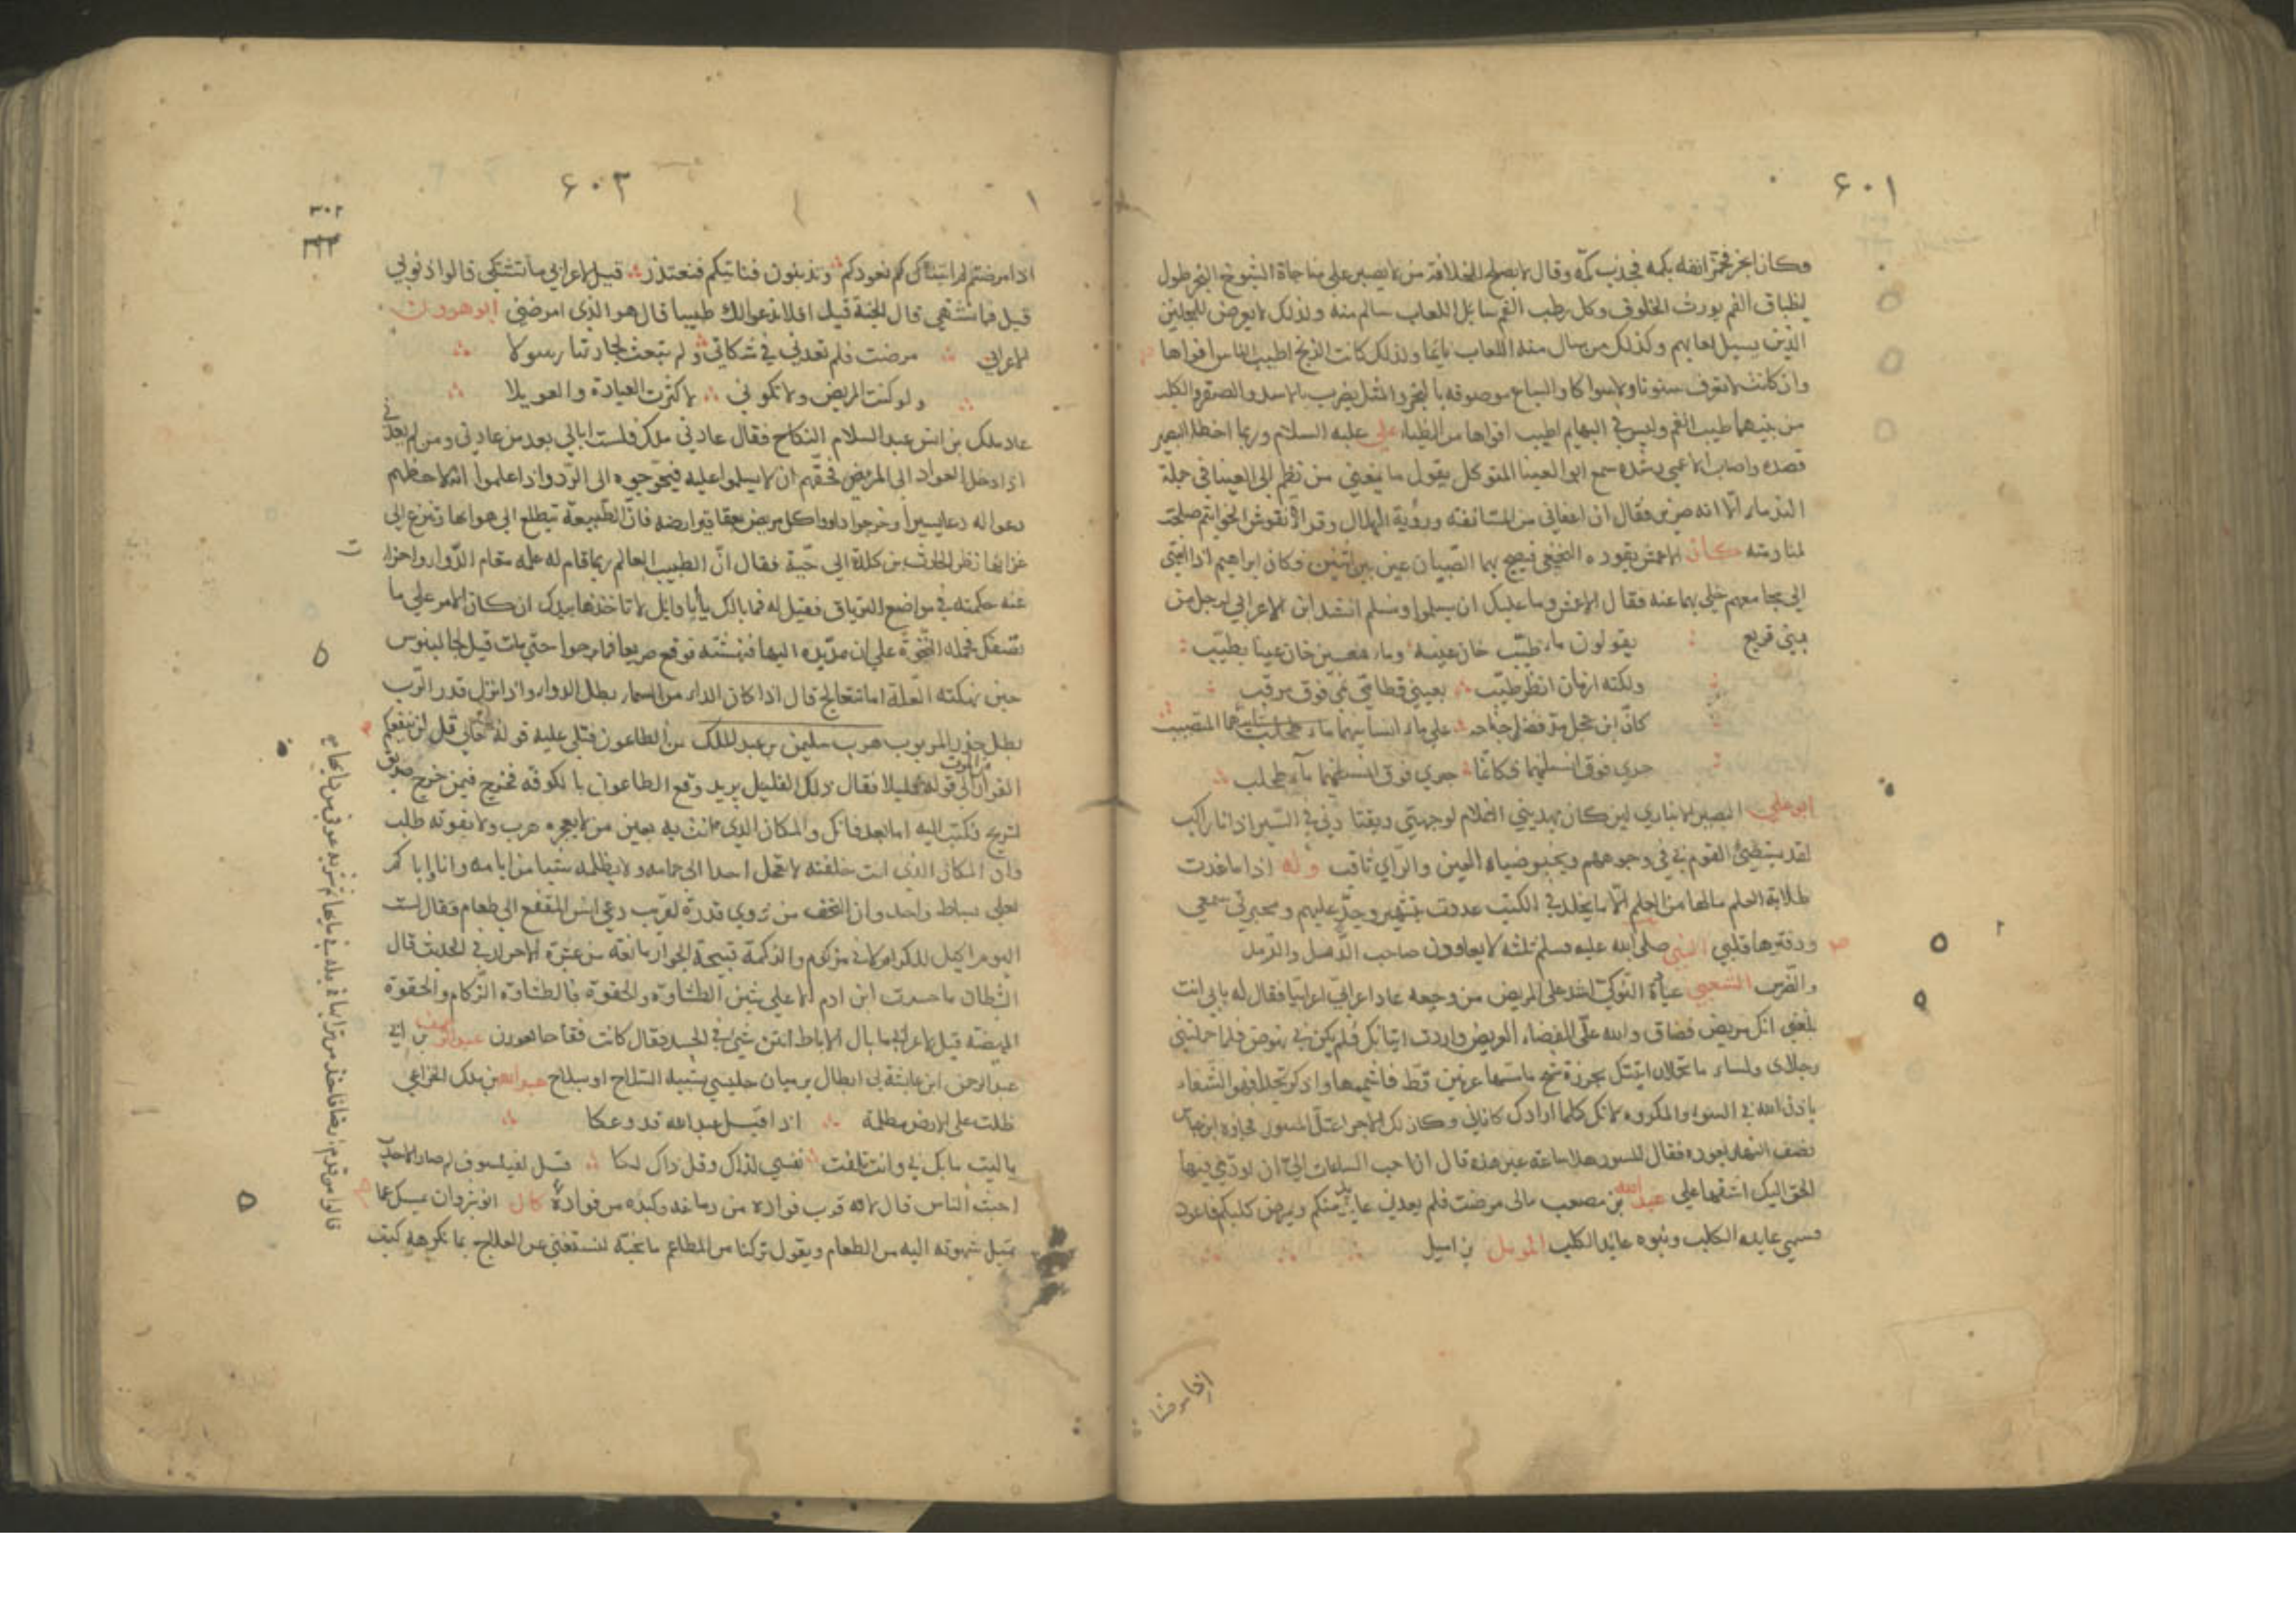 ۶۰۱
وكان ابخر فخمر انفه بكمه فجذب كمه وقال لا يصلح للخلافة من لا يصبر على مناجاة الشيوخ البخر طول
انطباق الفم يورث الخلوف وكل رطب الفم سائل اللعاب سالم منه ولذلك لا يعرض للمجانين
الذين يسيل لعابهم وكذلك من سال منه اللعاب نايما ولذلك كانت الزنج اطيب الناس افواها
وان كانت لا تعرف سنونا ولا سواكا والسباع موصوفه بالبخر والمثل يضرب بالاسد والصقر والكلب
من بينهما طيب الفم وليس في البهايم اطيب افواها من الظباء علي عليه السلام وربما اخطأ البصير
قصده واصاب الاعمى رشده سمع ابو العينا المتوكل يقول ما يمنعني من نظم ابي العينا في جملة
الندماء الا انه ضرير فقال ان اعفاني من المسائفة ورؤية الهلال وقراة نقوش الخواتيم صلحت
لمنادمته كان الاعمش يقوده النخعي فيصيح بهما الصبيان عين بين اثنين وكان ابراهيم اذا انتهى
الى مجامعهم خلى بها عنه فقال الاعمش وما عليك ان يسلموا ونسلم انشد ابن الاعرابي لرجل من
بني قريع يقولون ماء طيب خان عينه وماء معين خان عينا بطيب
ولكنه ازمان انظر طيب بعيني قطامي نمى فوق مرقب
كان ابن حجل مد فضل جناحه على ماء انسانيهما
جرى فوق انسانيهما فكانما جرى فوق انسانيهما ماء طحلب
ابو علي البصير الانباري لين كان يهديني الغلام لوجهتي ويقتادني في السير اذ انا راكب
لقد يستضيئ القوم بي في وجوههم ويخبو ضياء العين والراي ثاقب وله اذا ما غدت
طلابة العلم مالها من العلم الا ما يخلد في الكتب غدوت بتشمير وجد عليهم ومحبرتي سمعي
ودفترها قلبي النبي صلى الله عليه وسلم ثلثة لا يعادون صاحب الدمل والرمد
والضرس الشعبي عيادة النوكى اشد على المريض من وجعه عاد اعرابي اعرابيا فقال له بابي انت
بلغني انك مريض فضاق والله علي الفضاء العريض واردت اتيانك فلم يكن بي نهوض فلما حملتني
رجلاي ولساء ما تحملان اتيتك بجرزة شيح ما مستها عرنين قط فاشممها واذكر نجدا فهو الشفاء
باذن الله
نصف النهار يعوده فقال المسور هلا ساعة غير هذه قال ان احب الساعات الي ان اودي فيها
الحق اليك اشقها علي عبد الله بن مصعب مالى مرضت فلم يعدني عايد منكم ويمرض كلبكم فاعود
فسمي عايد الكلب وبنوه عايد الكلب المؤمل بن اميل
اذا مرضنا
۶۰۳
اذا مرضتم اتيناكم نعودكم وتذنبون فناتيكم فنعتذر قيل لاعرابي ما تشتكي قال ذنوبي
قيل فما تشتهي قال الجنة قيل افلا ندعوا لك طبيبا قال هو الذي امرضني ابو هرون
لاعرابي مرضت فلم تعدني في شكاتي ولم تبعث لجارتنا رسولا
ولو كنت المريض ولا تكوني لاكثرت العيادة والعويلا
عاد ملك بن انس عبد السلام النكاح فقال عادني ملك فلست ابالي بعد من عادني ومن لم يعدني
اذا دخل العواد الى المريض فحقهم ان لا يسلموا عليه فيحوجوه الى الرد واذا علموا انه لاحظهم
دعوا له دعا يسيرا وخرجوا داووا كل مريض بعقاقير ارضه فان الطبيعة تتطلع الى هوائها وتنزع الى
غذائها نظر الحارث بن كلدة الى حية فقال ان الطبيب العالم ربما قام له علمه مقام الدواء واجزا
عنه حكمته في مواضع الترياق فقيل له فما بالك يا ابا وايل لا تاخذها بيدك ان كان الامر على ما
تصف فحمله النخوة على ان مد يده اليها فنهشته فوقع صريعا فما برحوا حتى مات قيل لجالينوس
حين نهكته العلة اما تتعالج قال اذا كان الداء من السماء بطل الدواء واذا نزل قدر الرب
بطل حذر المربوب هرب سليمن بن عبد الملك من الطاعون فتلي عليه قوله تعالى قل لن ينفعكم
الفرار الى قوله الا قليلا فقال ذلك القليل يريد وقع الطاعون بالكوفة فخرج فيمن خرج صديق
لشريح فكتب اليه اما بعد فانك والمكان الذي انت به بعين من لا يعجزه هرب ولا يفوته طلب
وان المكان الذي انت خلفته لا يعجل احدا الى حمامه ولا يظلمه شيئا من ايامه وانا واياكم
لعلى بساط واحد وان النجف من ذوي قدرة لقريب دعي ابن المقفع الى طعام فقال لست
اليوم اكيل للكرام لاني مزكوم والزكمة قبيحة الجوار مانعة من عشرة الاحرار في الحديث قال
الشيطان ما حسدت ابن ادم الا على شيئين الطشاة والحقوة فالطشاة الزكام والحقوة
الهيضة قيل لاعرابي ما بال الاباط انتن شيئ في الجسد فقال كانت فقاحا فعورن
عبد الرحمن
ظلت على الارض مظلمة اذ قيل عبد الله قد وعكا
يا ليت ما بك بي وانت تلفت نفسي لذاك وقل ذاك لكا قيل لفيلسوف لم صار الاحدب
اخبث الناس قال لانه قرب فواده من دماغه وكبده من فواده كان انوشروان يمسك عما
تميل شهوته اليه من الطعام ويقول تركنا من المطاعم ما نحبه لنستغني عن العلاج بما نكرهه كتب